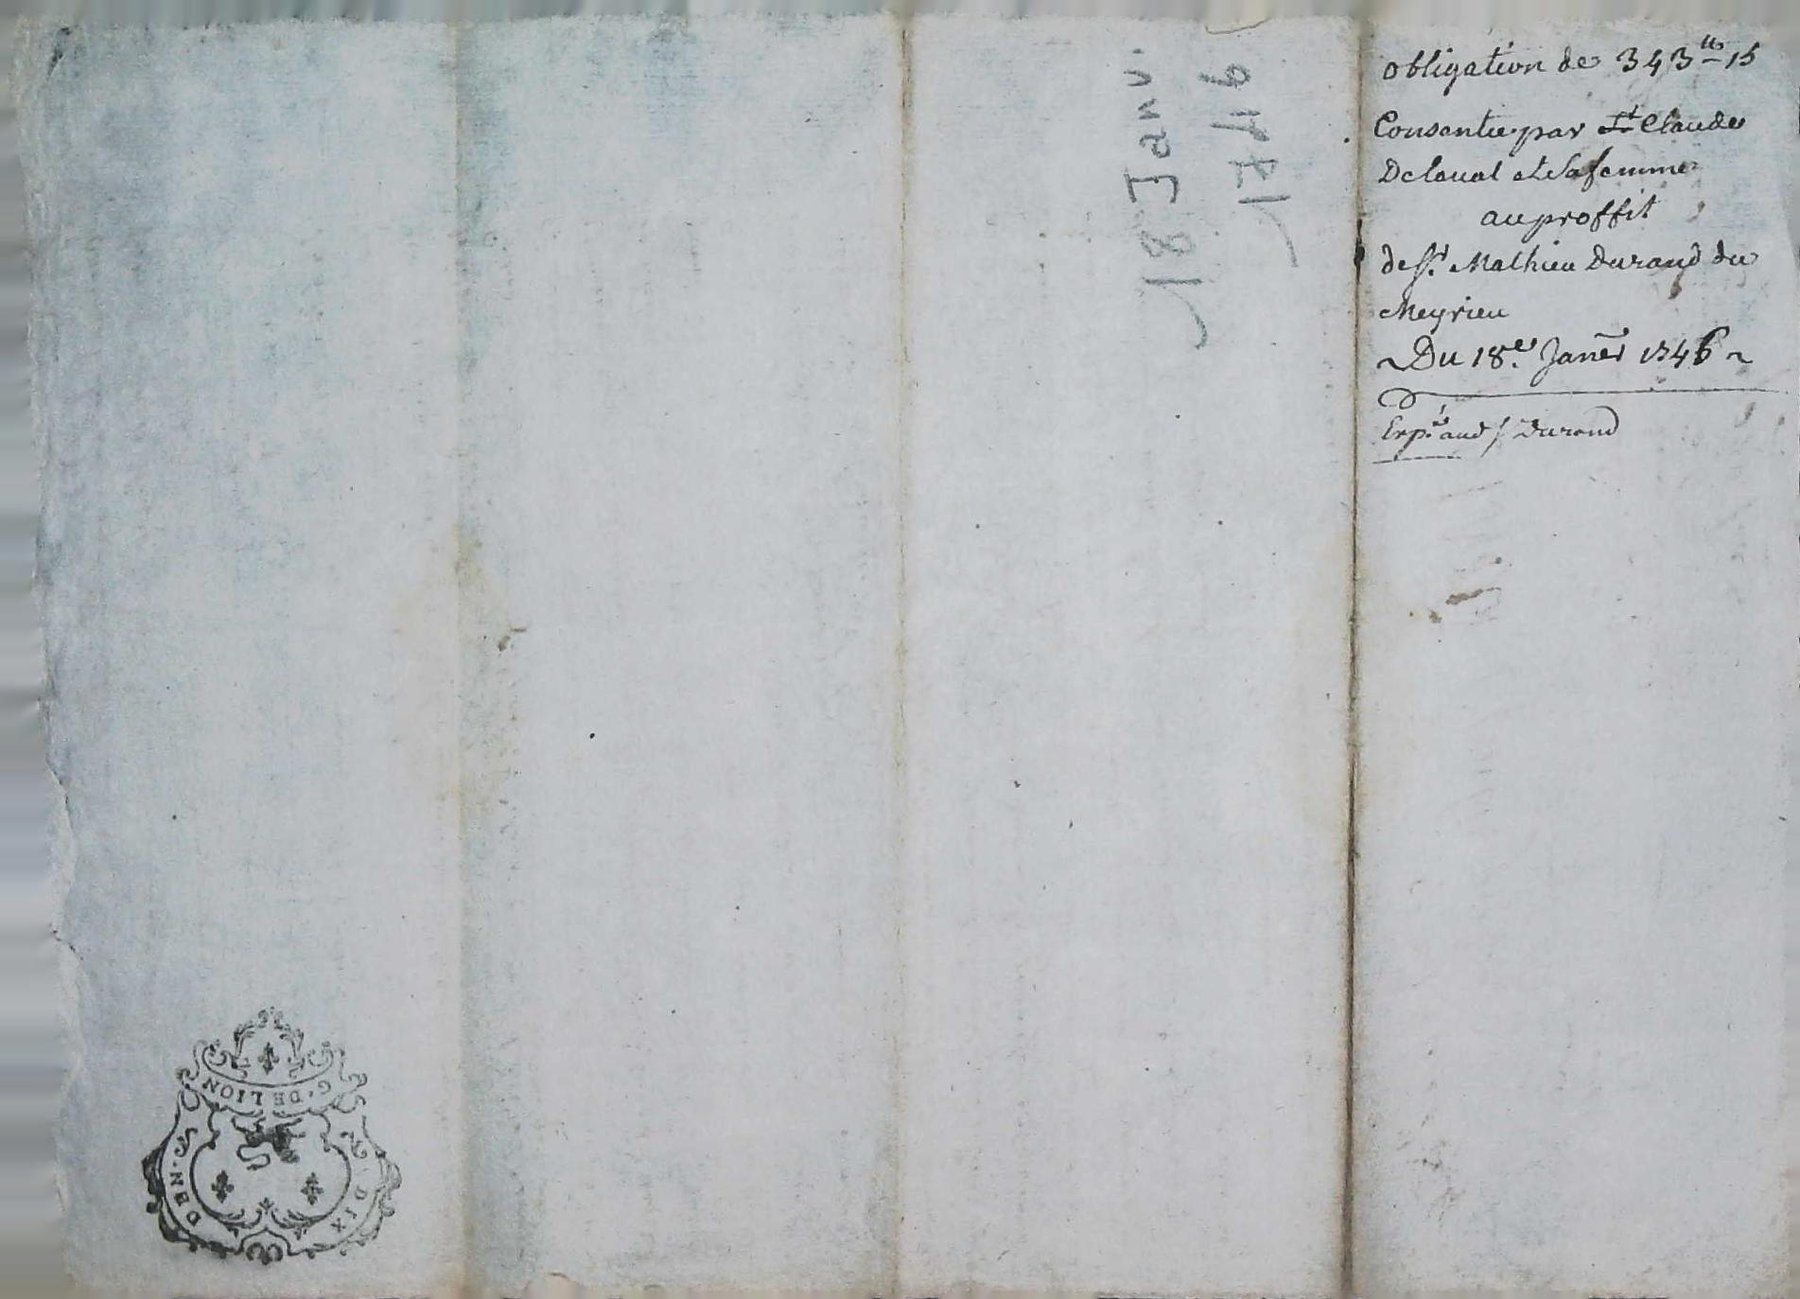 obligation de 343ᵗᵗ 15
Consentie par Sᵗ Claude
Delaual et Sa femme
au proffit
de sʳ Mathieu Durand du
Meyrieu
Du 18ᵉ Janᵉʳ 1746
Durand
18 Janv.
1746
G. DE LION
DIX
DEN.